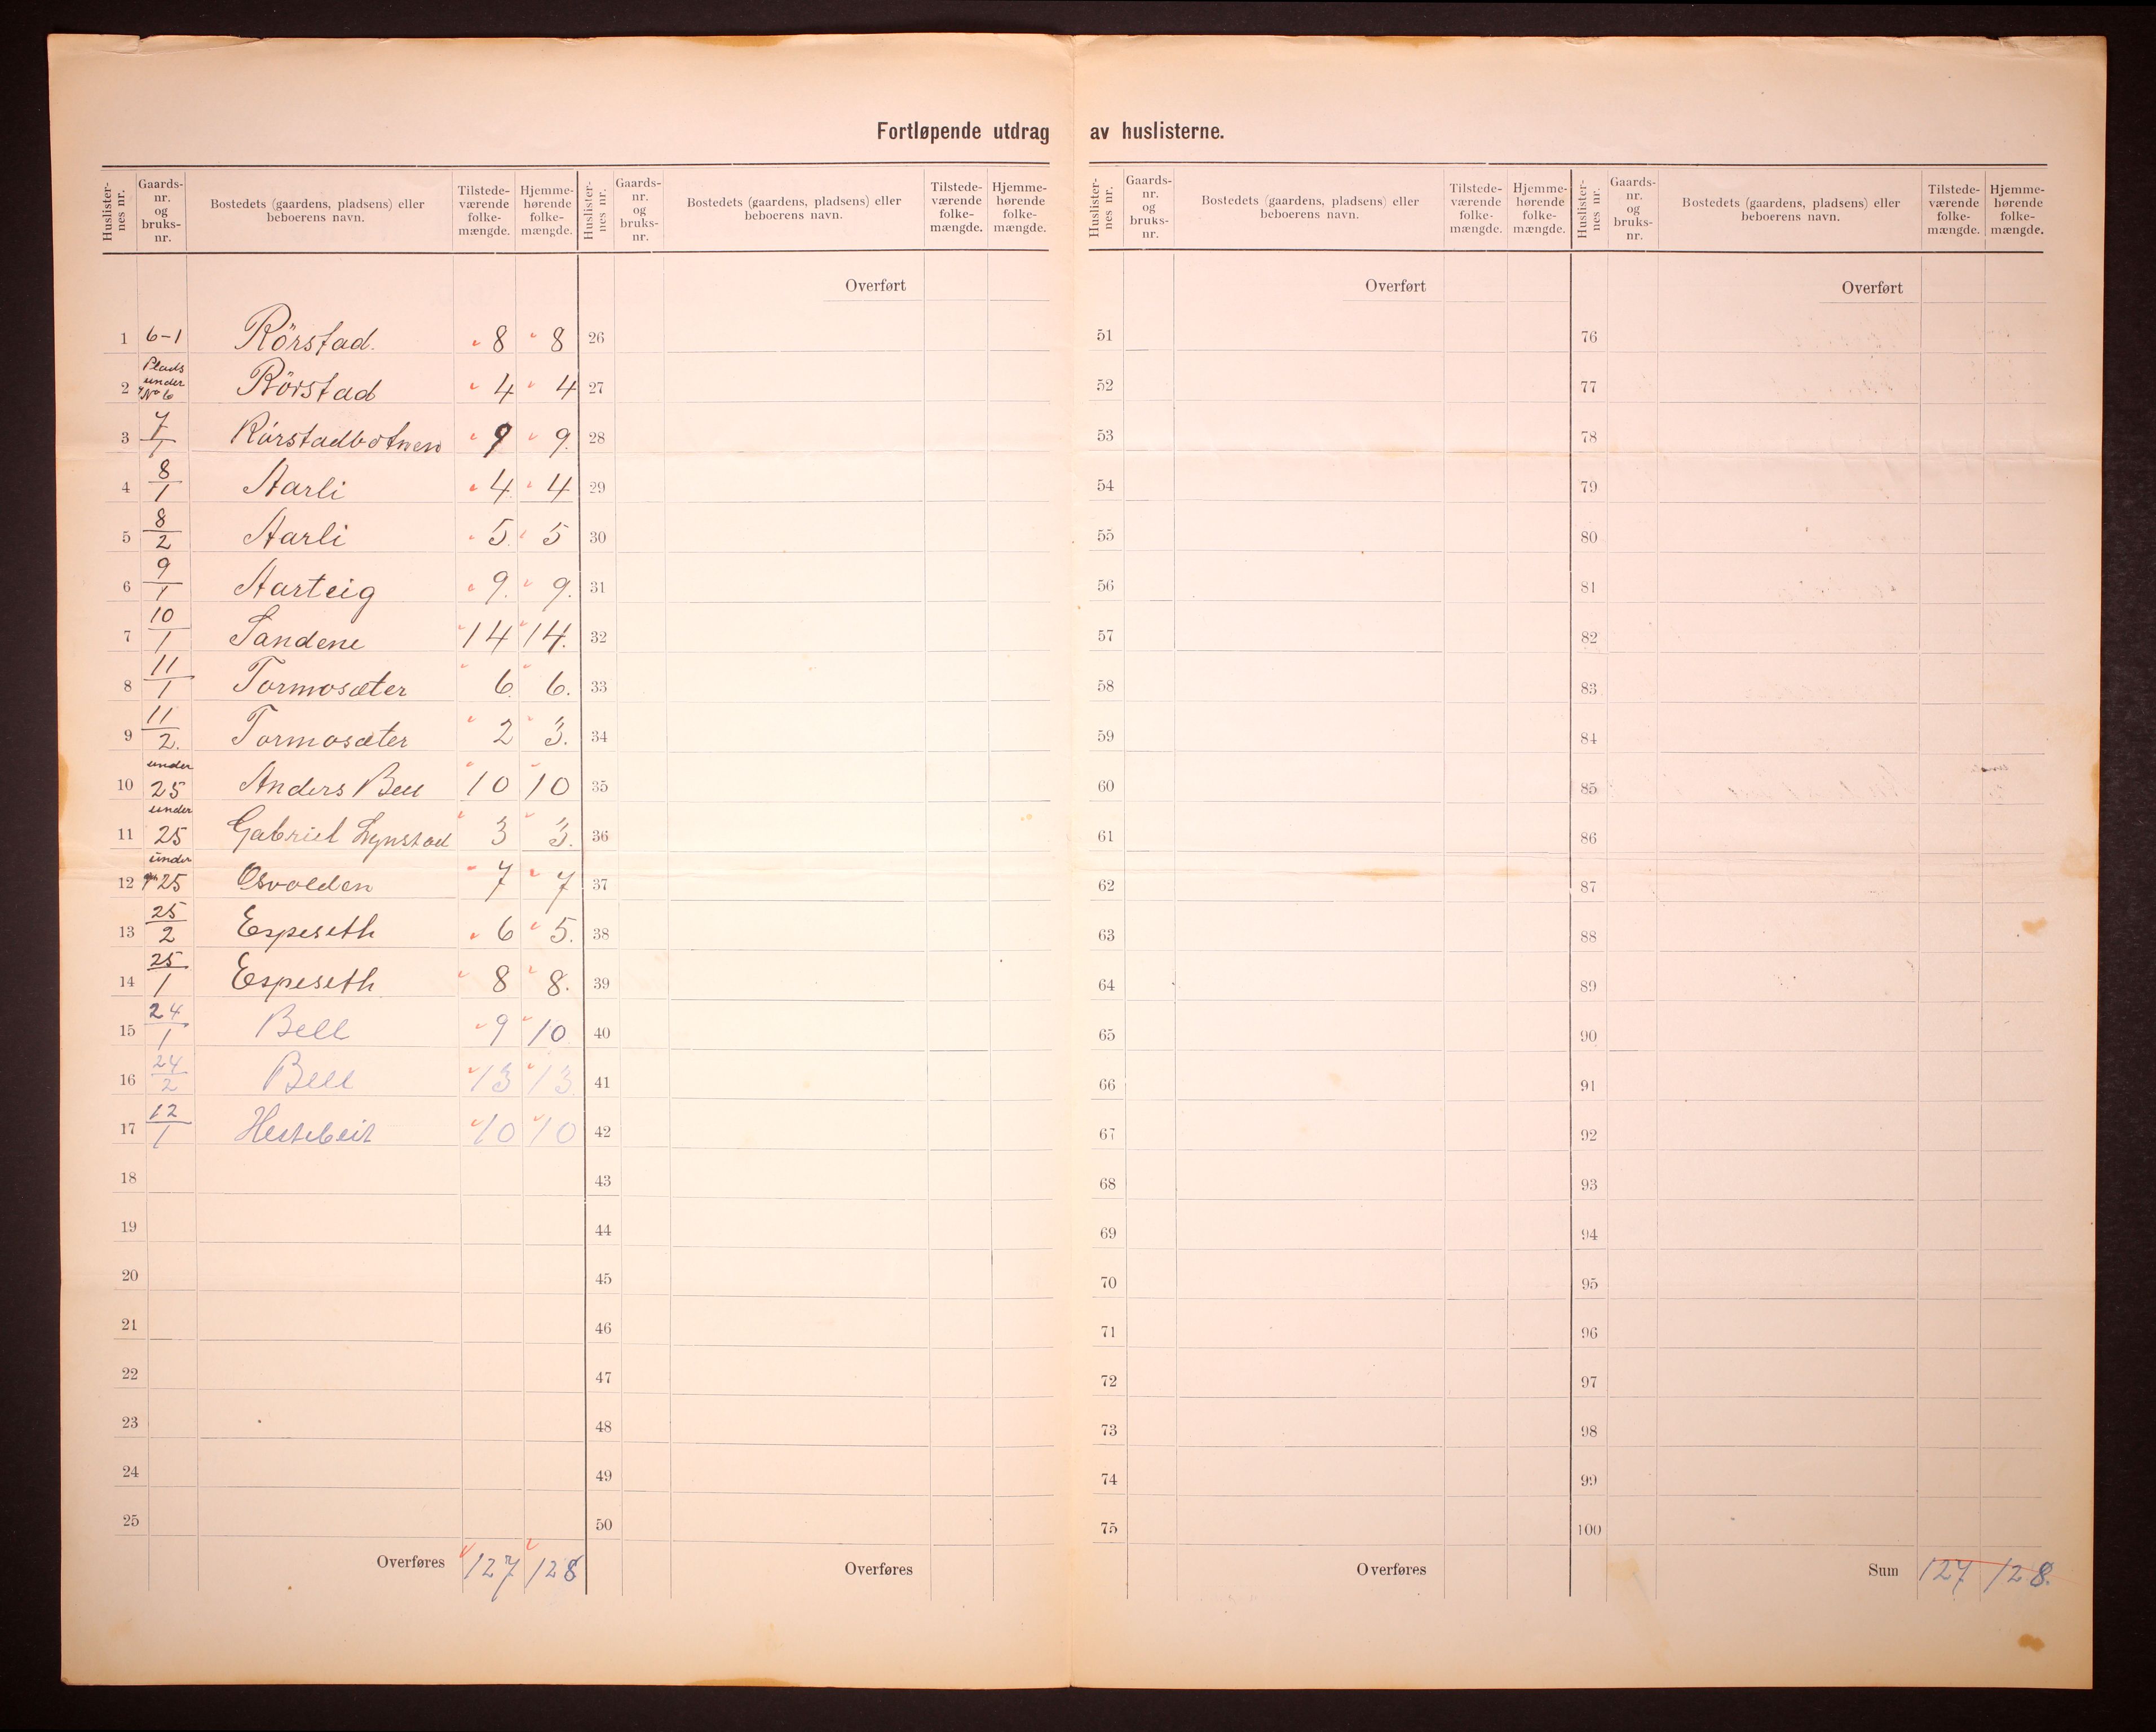 Fortløpende utdrag av huslisterne.
Huslister-nes nr. Gaards-nr. og bruks-nr. Bostedets (gaardens, pladsens) eller beboerens navn. Tilstede-værende folke-mængde. Hjemme-hørende folke-mængde.
Huslister-nes nr. Gaards-nr. og bruks-nr. Bostedets (gaardens, pladsens) eller beboerens navn. Tilstede-værende folke-mængde. Hjemme-hørende folke-mængde.
Huslister-nes nr. Gaards-nr. og bruks-nr. Bostedets (gaardens, pladsens) eller beboerens navn. Tilstede-værende folke-mængde. Hjemme-hørende folke-mængde.
Huslister-nes nr. Gaards-nr. og bruks-nr. Bostedets (gaardens, pladsens) eller beboerens navn. Tilstede-værende folke-mængde. Hjemme-hørende folke-mængde.
Overført Overført Overført
1 6-1 Rörstad. 8 8 26 51 76
2 Plads under No 6 Rörstad 4 4 27 52 77
3 7/1 Rörstadbotnen 9 9. 28 53 78
4 8/1 Aarli 4 4 29 54 79
5 8/2 Aarli 5. 5 30 55 80
6 9/1 Aarteig 9. 9. 31 56 81
7 10/1 Sandene 14 14. 32 57 82
8 11/1 Tormosæter 6. 6. 33 58 83
9 11/2. Tormosæter 2 3. 34 59 84
10 under 25 Anders Bell 10 10 35 60 85
11 under 25 Gabriel 3 3. 36 61 86
12 under 25 Osvolden 7 7 37 62 87
13 25/2 Espeseth 6 5. 38 63 88
14 25/1 Espeseth 8 8. 39 64 89
15 24/1 Bell 9 10. 40 65 90
16 24/2 Bell 13 13. 41 66 91
17 12/1 Hestebeit 10 10 42 67 92
18 43 68 93
19 44 69 94
20 45 70 95
21 46 71 96
22 47 72 97
23 48 73 98
24 49 74 99
25 50 75 100
Overføres 127 128 Overføres Overføres Sum 127 128.